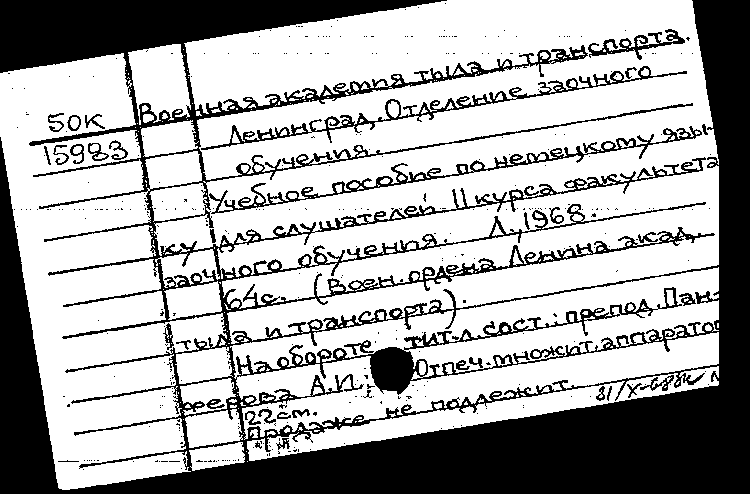 50К
15983
Военная академия тыла и транспорта.
Ленинград. Отделение заочного
обучения.
Учебное пособие по немецкому язы-
ку для слушателей II курса факультета
заочного обучения. Л., 1968.
64с. (Воен. ордена Ленина акад.
тыла и транспорта).
На обороте тит.л. сост.: препод. Пан-
ферова А.И. Отпеч. множит. аппаратом
22см.
Продаже не подлежит.